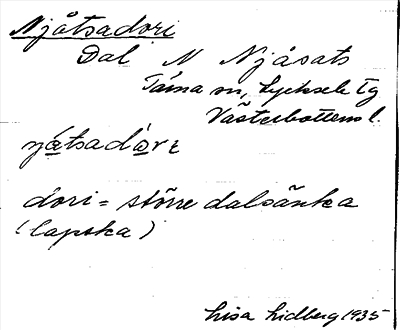 Njåtsadori
Dal N Njåsats
Tärna sn, Lycksele lg
Västerbottens l.
dori = större dalsänka
(lapska)
Lisa Lidberg 1935